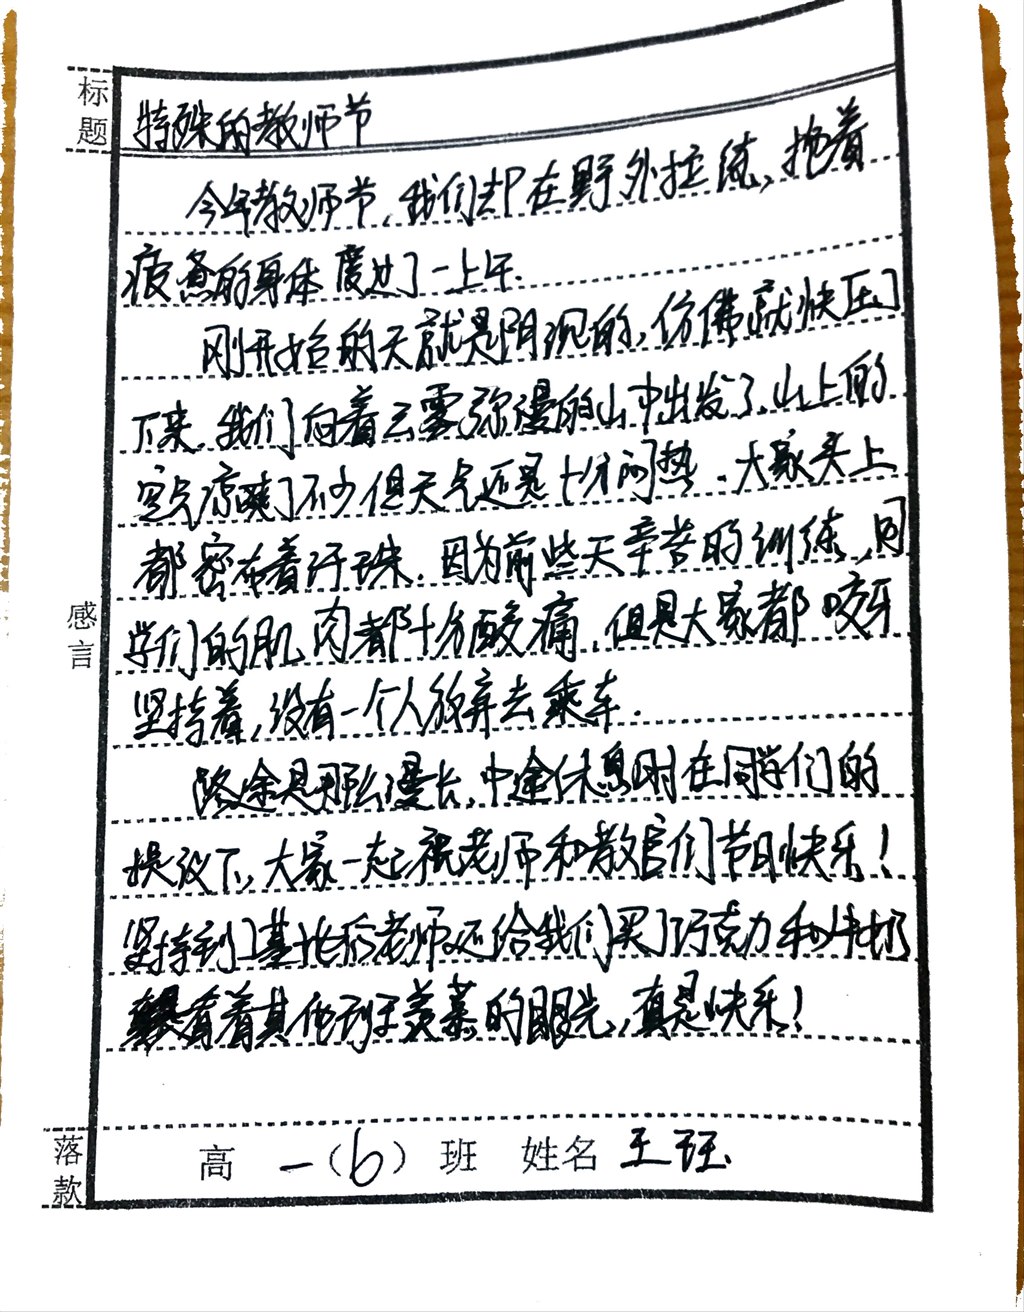 标题
特殊的教师节
今年教师节，我们却在野外拉练，拖着
疲惫的身体度过了一上午.
刚开始的天就是阴沉的，仿佛就快压了
下来.我们向着云雾弥漫的山中出发了.山上的
空气凉爽了不少但天气还是十分闷热.大家头上
都密布着汗珠.因为前些天辛苦的训练，同
学们的肌肉都十分酸痛，但是大家都咬牙
坚持着，没有一个人放弃去乘车.
路途是那么漫长，中途休息时在同学们的
提议下，大家一起祝老师和教官们节日快乐！
坚持到了基地后老师还给我们买了巧克力和牛奶
看着其他班羡慕的眼光，真是快乐！
感言
落款
高一（6）班 姓名 王珏